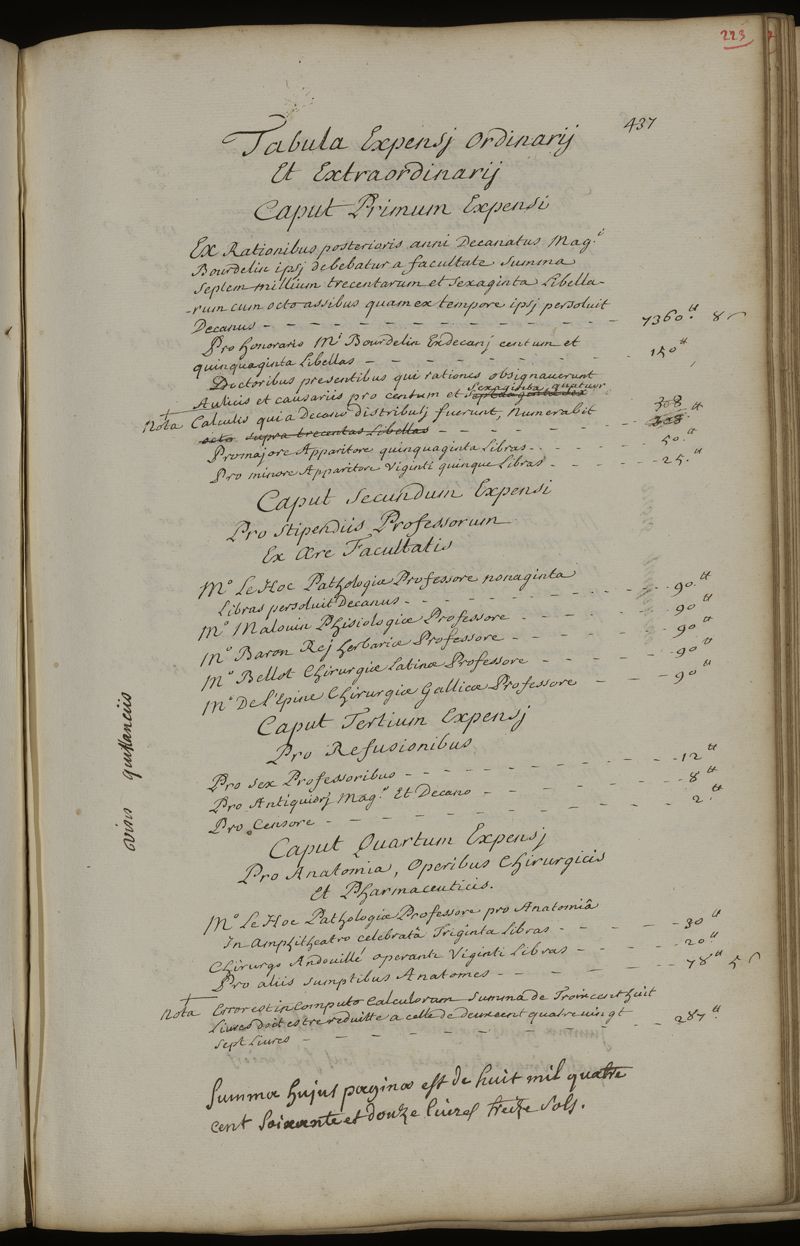 223
437
Tabula Expensj Ordinarij
Et Extraordinarij
Caput Primum Expensi
Ex Rationibus posterioris anni Decanatus Mag.ri
Bourdelin ipsj debebatur a facultate Summa
Septem millium trecentarum et Sexaginta Libella-
-rum cum octo assibus quam ex tempore ipsj persoluit
Decanus - - - - - - - - 7360.tt 8 s
Pro honorario M.i Bourdelin Exdecanj centum et
quinquaginta Libellas - - - - - - 150 tt
Doctoribus presentibus qui rationes obsignauerunt
Aulicis et causariis pro centum et Sexaginta quatuor
Nota Calculis qui a Decano distributj fuerunt, Numerabit 308
octo supra trecentas Libellas - - - - - 308 tt
Pro majore Apparitore quinquaginta Libras - - - - 50.tt
Pro minore Apparitore Viginti quinque Libras - - - - 25.tt
Caput Secundum Expensi
Pro Stipendiis Professorum
Ex Ære Facultatis
M.o Le Hoc Pathologiæ Professore nonaginta
Libras persoluit Decanus - - - - - - 90.tt
M.o Malouin Phisiologiæ Professore - - - - 90 tt
M.o Baron Rej herbariæ Professore - - - - 90 tt
M.o Bellot Chirurgiæ Latinæ Professore - - - - 90.tt
M.o De L'Epine Chirurgiæ Gallicæ Professore - - - 90 tt
Caput Tertium Expensj
Pro Refusionibus
Pro Sex Professoribus - - - - - - 12 tt
Pro Antiquiorj Mag.o Et Decano - - - - - 8 tt
Pro Censore - - - - - - - 2.tt
visis quittanciis
Caput Quartum Expensj
Pro Anatomia, Operibus Chirurgicis
Et Pharmaceuticis.
M.o Le Hoc Pathologiæ Professore pro Anatomiâ
In Amphitheatro celebratâ Triginta Libras - - - - 30 tt
Chirurgo Andouillé operante Viginti Libras - - - 20 tt
Pro aliis sumptibus Anatomes - - - - - 78 tt 5 s
Nota Error est in Computo Calculorum Summa de Troincens et huit
Livres doit estre reduitte a celle de deux cent quatre uingt
Sept Liures - - - - - - - - 287 tt
Summa hujus paginæ est de huit mil quatre
cent Soixante et douze liures treize Sols.